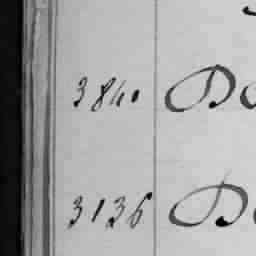 3840 Do
3136 Do